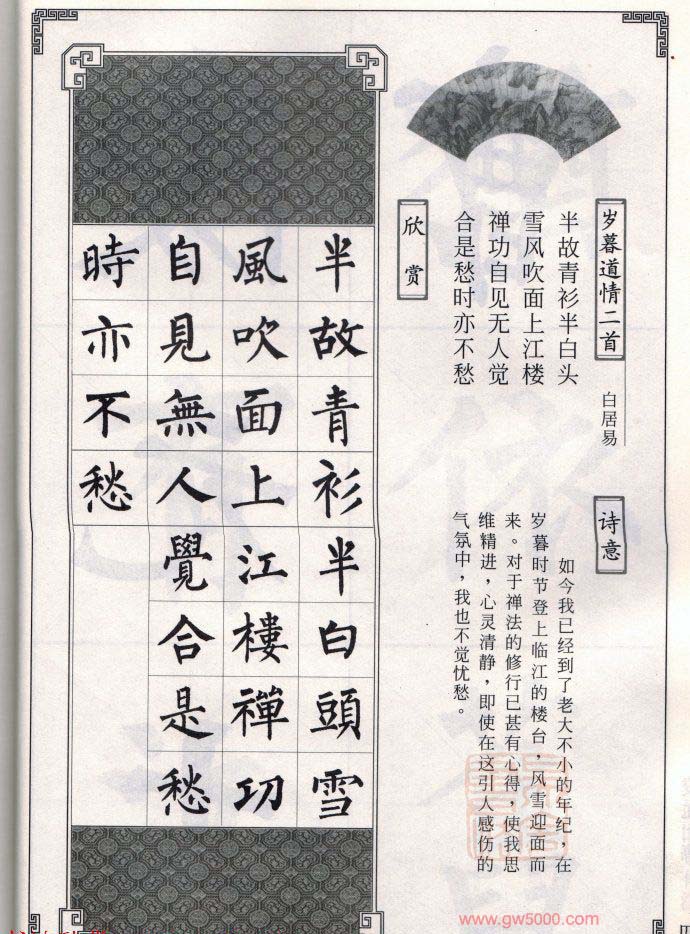 岁暮道情二首
白居易
半故青衫半白头
雪风吹面上江楼
禅功自见无人觉
合是愁时亦不愁
诗意
如今我已经到了老大不小的年纪，在
岁暮时节登上临江的楼台，风雪迎面而
来。对于禅法的修行已甚有心得，使我思
维精进，心灵清静，即使在这引人感伤的
气氛中，我也不觉忧愁。
欣赏
半故青衫半白頭雪
風吹面上江樓禪功
自見無人覺合是愁
時亦不愁
www.gw5000.com